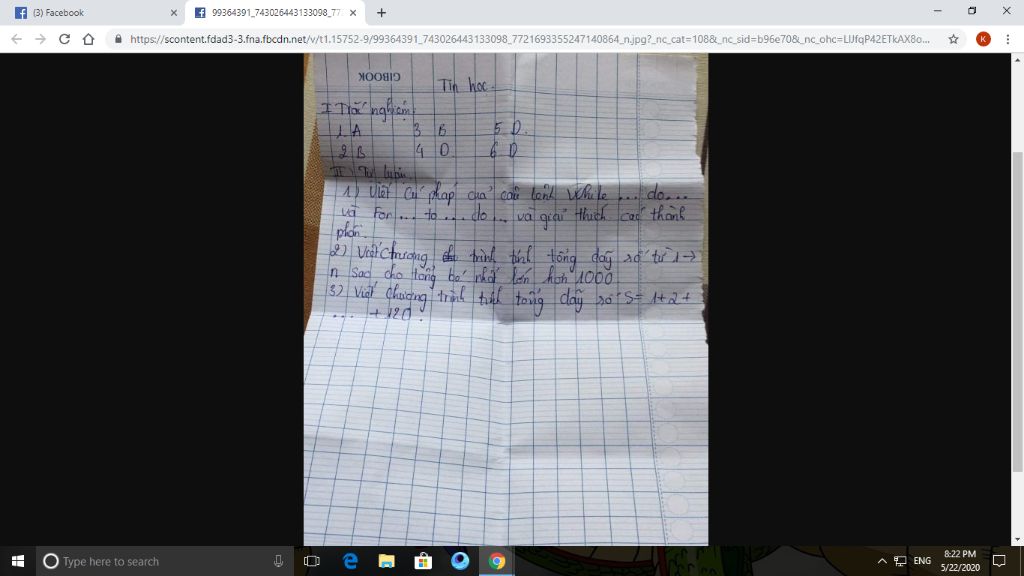 (3) Facebook
99364391_743026443133098_77
https://scontent.fdad3-3.fna.fbcdn.net/v/t1.15752-9/99364391_743026443133098_7721693355247140864_n.jpg?_nc_cat=108&_nc_sid=b96e70&_nc_ohc=LlJfqP42ETkAX8o...
K
GIBOOK
Tin học.
I Trắc nghiệm:
1. A 3 B 5 D.
2 B 4 D. 6 D
II) Tự luận.
1) Viết cú pháp của câu lệnh While ... do...
và For ... to ... do ... và giải thích các thành
phần.
2) Viết chương trình tính tổng dãy số từ 1 →
n sao cho tổng bé nhất lớn hơn 1000
3) Viết chương trình tính tổng dãy số S= 1+2+
... +120.
Type here to search
ENG
8:22 PM
5/22/2020